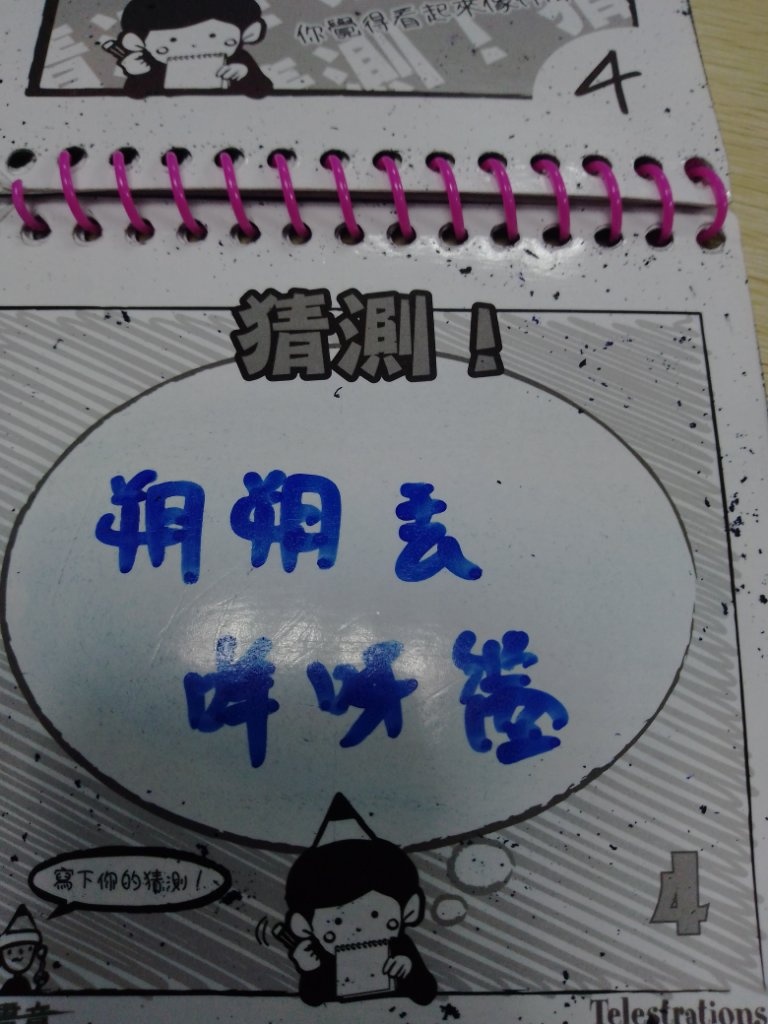 你覺得看起來像
4
猜測！
朔朔丟
咩呀
寫下你的猜測！
4
Telestrations